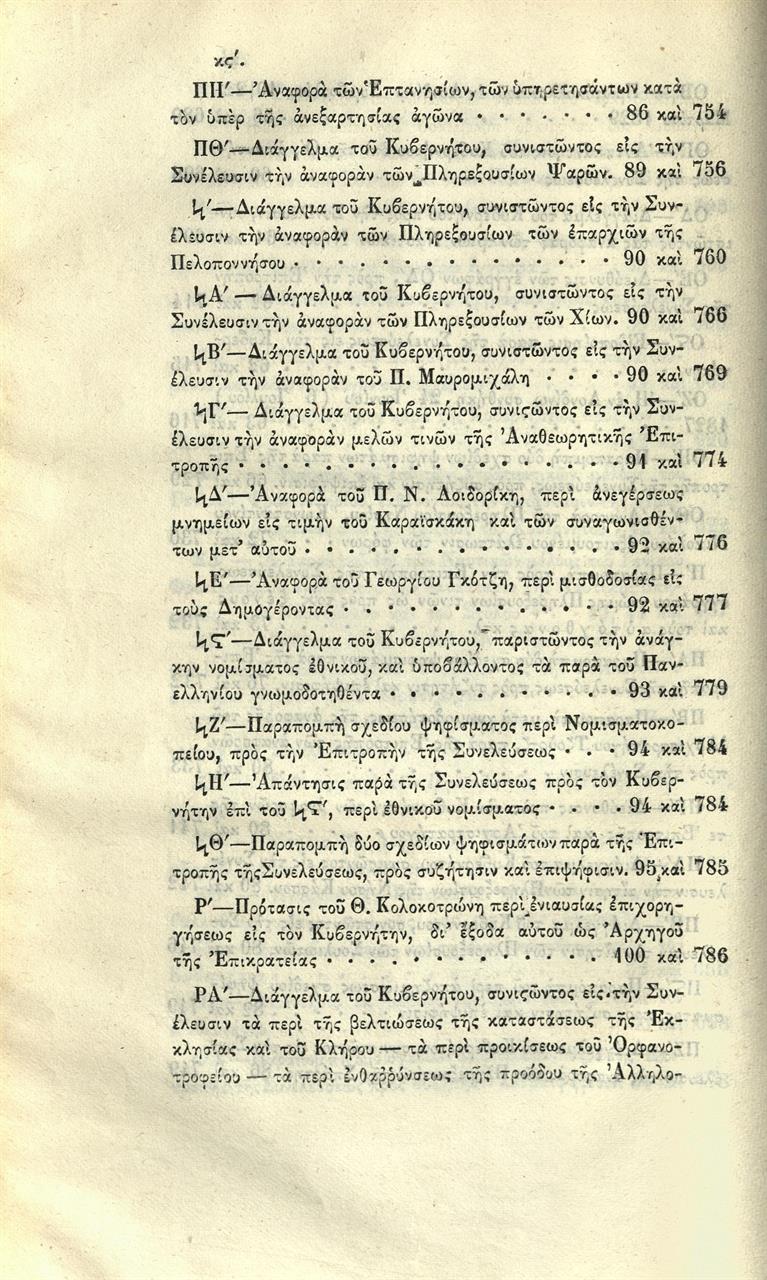 κς΄.
ΠΗ΄—Ἀναφορὰ τῶν Ἑπτανησίων, τῶν ὑπηρετησάντων κατὰ
τὸν ὑπὲρ τῆς ἀνεξαρτησίας ἀγῶνα · · · · · · 86 καὶ 754
ΠΘ΄—Διάγγελμα τοῦ Κυβερνήτου, συνιστῶντος εἰς τὴν
Συνέλευσιν τὴν ἀναφορὰν τῶν Πληρεξουσίων Ψαρῶν. 89 καὶ 756
Ϟ΄—Διάγγελμα τοῦ Κυβερνήτου, συνιστῶντος εἰς τὴν Συν-
έλευσιν τὴν ἀναφορὰν τῶν Πληρεξουσίων τῶν ἐπαρχιῶν τῆς
Πελοποννήσου · · · · · · · · · · · · · 90 καὶ 760
ϞΑ΄ — Διάγγελμα τοῦ Κυβερνήτου, συνιστῶντος εἰς τὴν
Συνέλευσιν τὴν ἀναφορὰν τῶν Πληρεξουσίων τῶν Χίων. 90 καὶ 766
ϞΒ΄—Διάγγελμα τοῦ Κυβερνήτου, συνιστῶντος εἰς τὴν Συν-
έλευσιν τὴν ἀναφορὰν τοῦ Π. Μαυρομιχάλη · · · · 90 καὶ 769
ϞΓ΄— Διάγγελμα τοῦ Κυβερνήτου, συνιϛῶντος εἰς τὴν Συν-
έλευσιν τὴν ἀναφορὰν μελῶν τινῶν τῆς Ἀναθεωρητικῆς Ἐπι-
τροπῆς · · · · · · · · · · · · · · · · 91 καὶ 774
ϞΔ΄—Ἀναφορὰ τοῦ Π. Ν. Λοιδορίκη, περὶ ἀνεγέρσεως
μνημείων εἰς τιμὴν τοῦ Καραϊσκάκη καὶ τῶν συναγωνισθέν-
των μετ’ αὐτοῦ · · · · · · · · · · · · · 92 καὶ 776
ϞΕ΄—Ἀναφορὰ τοῦ Γεωργίου Γκότζη, περὶ μισθοδοσίας εἰς
τοὺς Δημογέροντας · · · · · · · · · · · · 92 καὶ 777
ϞϚ΄—Διάγγελμα τοῦ Κυβερνήτου, παριστῶντος τὴν ἀνάγ-
κην νομίσματος ἐθνικοῦ, καὶ ὑποβάλλοντος τὰ παρὰ τοῦ Παν-
ελληνίου γνωμοδοτηθέντα · · · · · · · · · · 93 καὶ 779
ϞΖ΄—Παραπομπὴ σχεδίου ψηφίσματος περὶ Νομισματοκο-
πείου, πρὸς τὴν Ἐπιτροπὴν τῆς Συνελεύσεως · · · 94 καὶ 784
ϞΗ΄—Ἀπάντησις παρὰ τῆς Συνελεύσεως πρὸς τὸν Κυβερ-
νήτην ἐπὶ τοῦ ϞϚ΄, περὶ ἐθνικοῦ νομίσματος · · · · 94 καὶ 784
ϞΘ΄—Παραπομπὴ δύο σχεδίων ψηφισμάτων παρὰ τῆς Ἐπι-
τροπῆς τῆς Συνελεύσεως, πρὸς συζήτησιν καὶ ἐπιψήφισιν. 95 καὶ 785
Ρ΄—Πρότασις τοῦ Θ. Κολοκοτρώνη περὶ ἐνιαυσίας ἐπιχορη-
γήσεως εἰς τὸν Κυβερνήτην, δι’ ἔξοδα αὐτοῦ ὡς Ἀρχηγοῦ
τῆς Ἐπικρατείας · · · · · · · · · · · · 100 καὶ 786
ΡΑ΄—Διάγγελμα τοῦ Κυβερνήτου, συνιϛῶντος εἰς τὴν Συν-
έλευσιν τὰ περὶ τῆς βελτιώσεως τῆς καταστάσεως τῆς Ἐκ-
κλησίας καὶ τοῦ Κλήρου — τὰ περὶ προικίσεως τοῦ Ὀρφανο-
τροφείου — τὰ περὶ ἐνθαῤῥύνσεως τῆς προόδου τῆς Ἀλληλο-